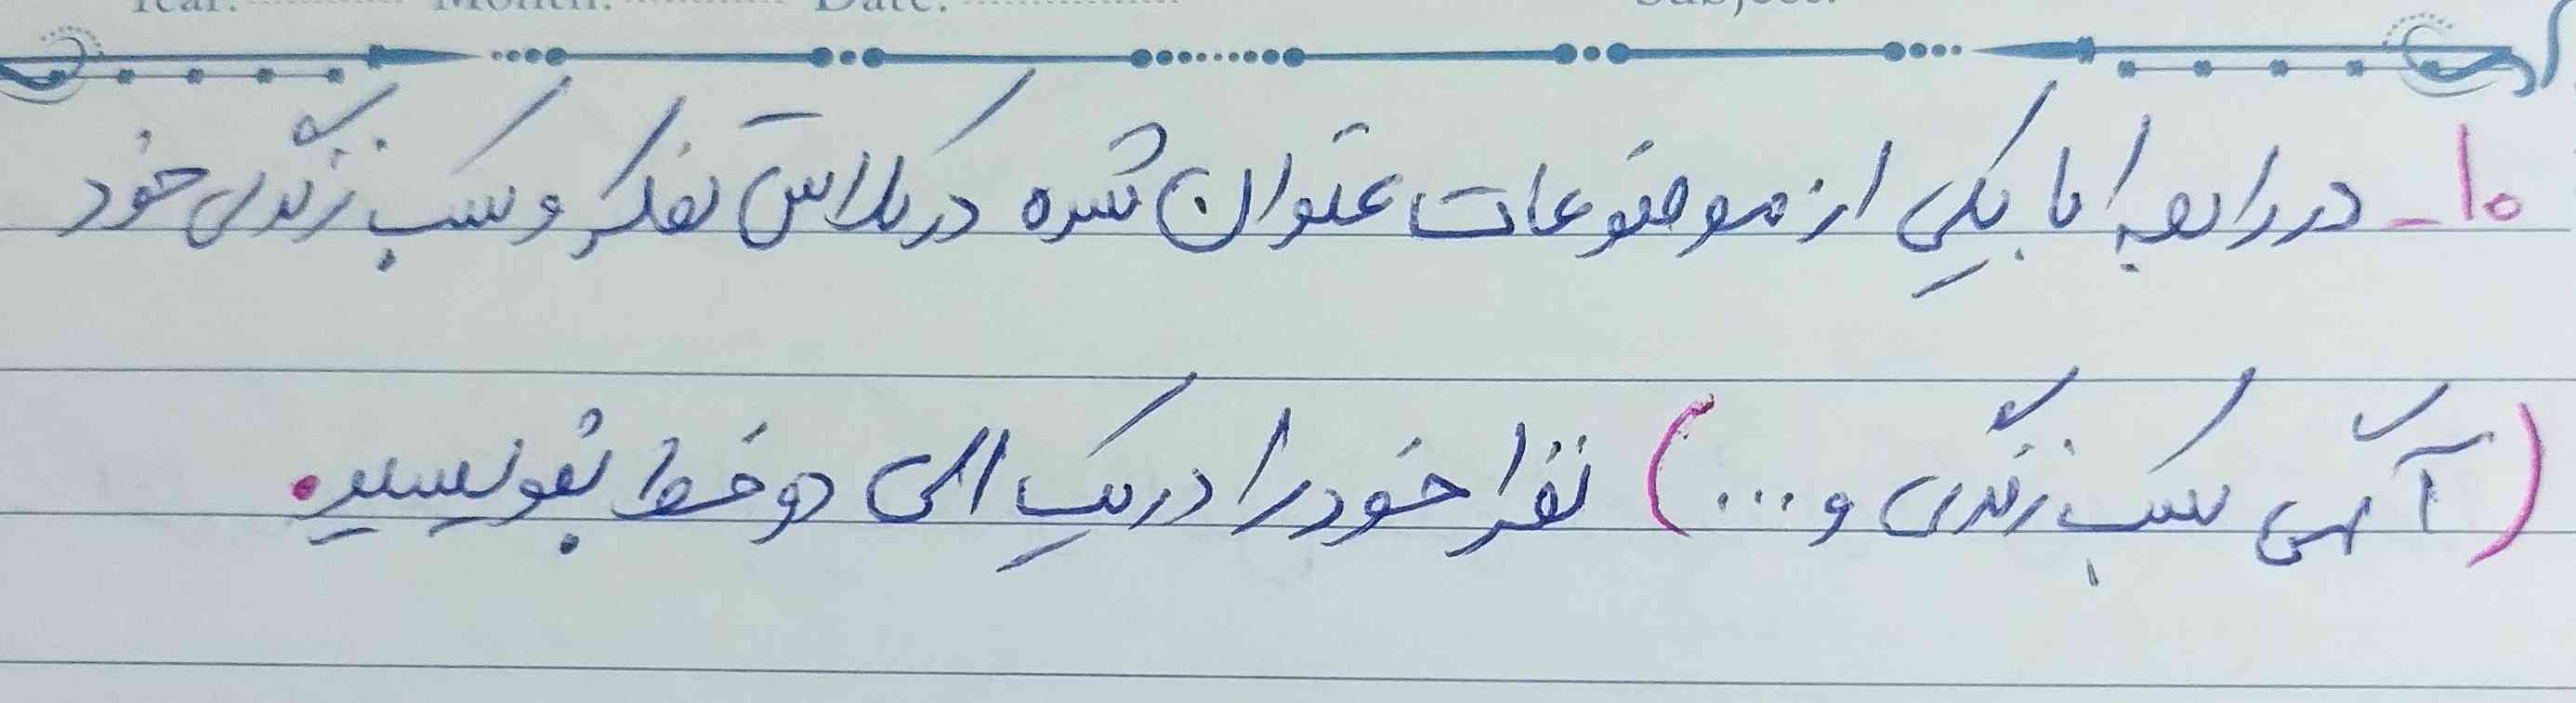 Year: Month: Date: Subject:
۱۰- در رابطه با یکی از موضوعات عنوان شده در کلاس تفکر و سبک زندگی خود
(آگهی سبک زندگی و ...) نظر خود را در یک الی دو خط بنویسید.